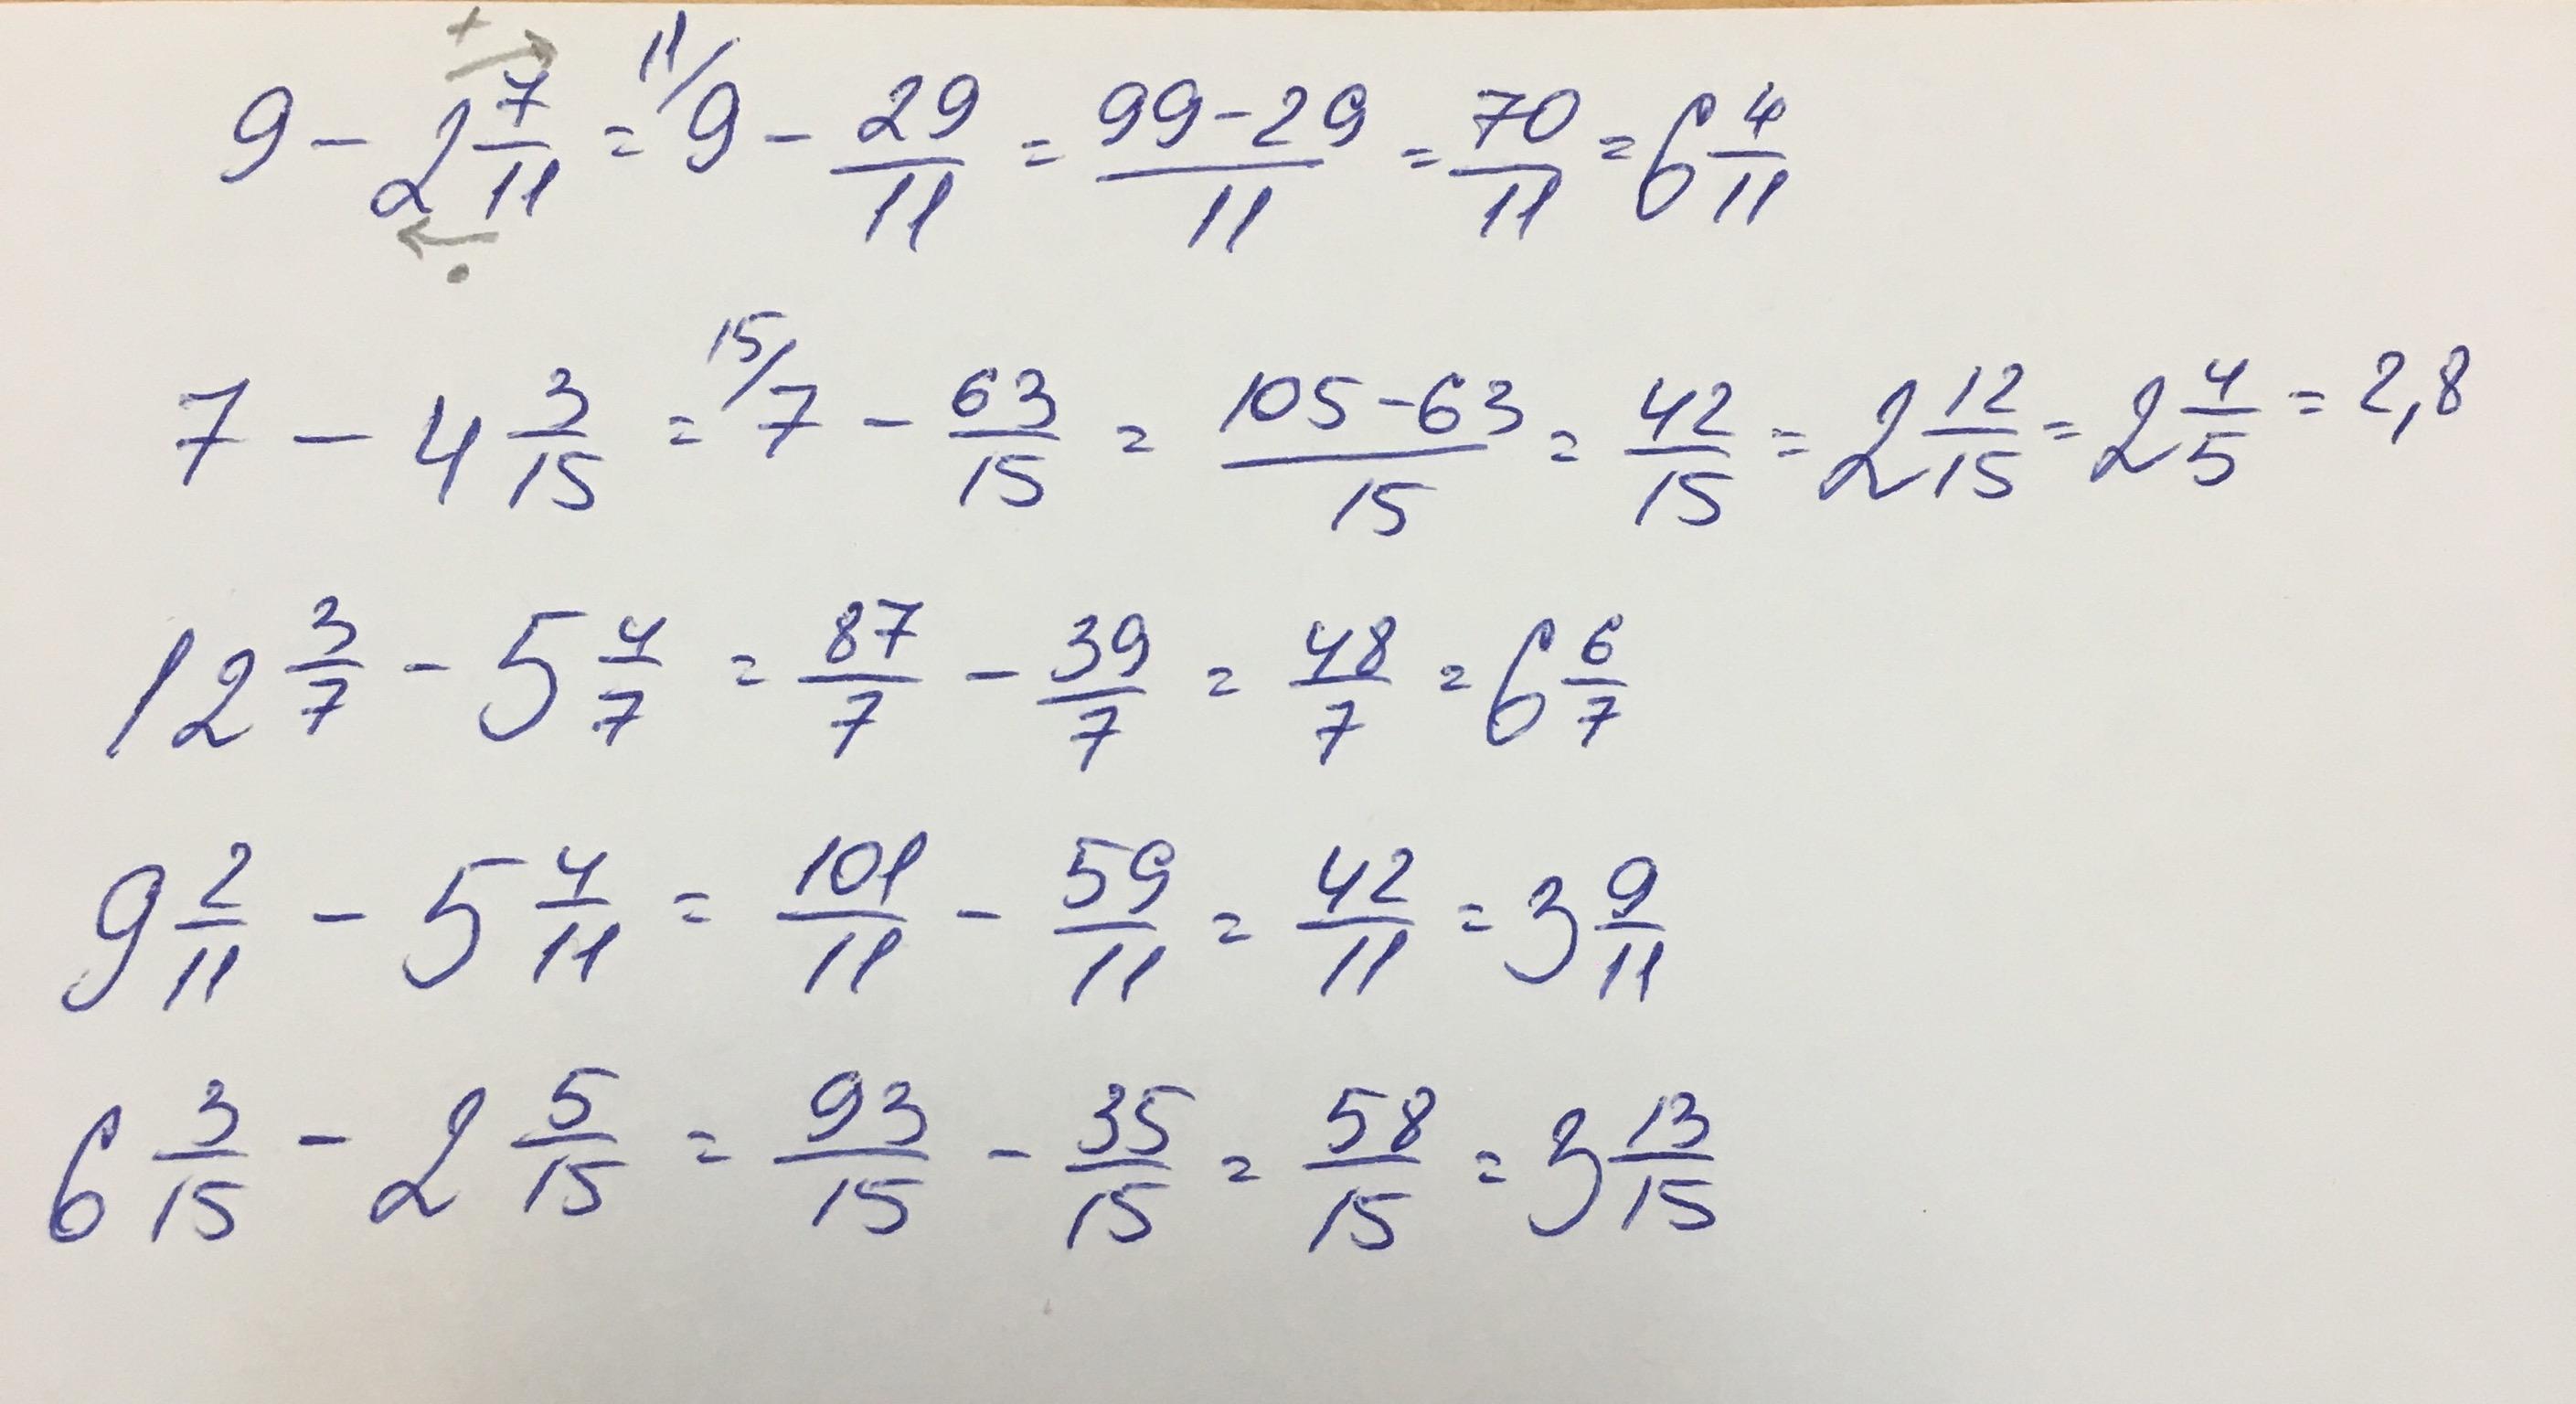 9 - 2 7/11 = 11/ 9 - 29/11 = (99-29)/11 = 70/11 = 6 4/11
7 - 4 3/15 = 15/ 7 - 63/15 = (105-63)/15 = 42/15 = 2 12/15 = 2 4/5 = 2,8
12 3/7 - 5 4/7 = 87/7 - 39/7 = 48/7 = 6 6/7
9 2/11 - 5 4/11 = 101/11 - 59/11 = 42/11 = 3 9/11
6 3/15 - 2 5/15 = 93/15 - 35/15 = 58/15 = 3 13/15